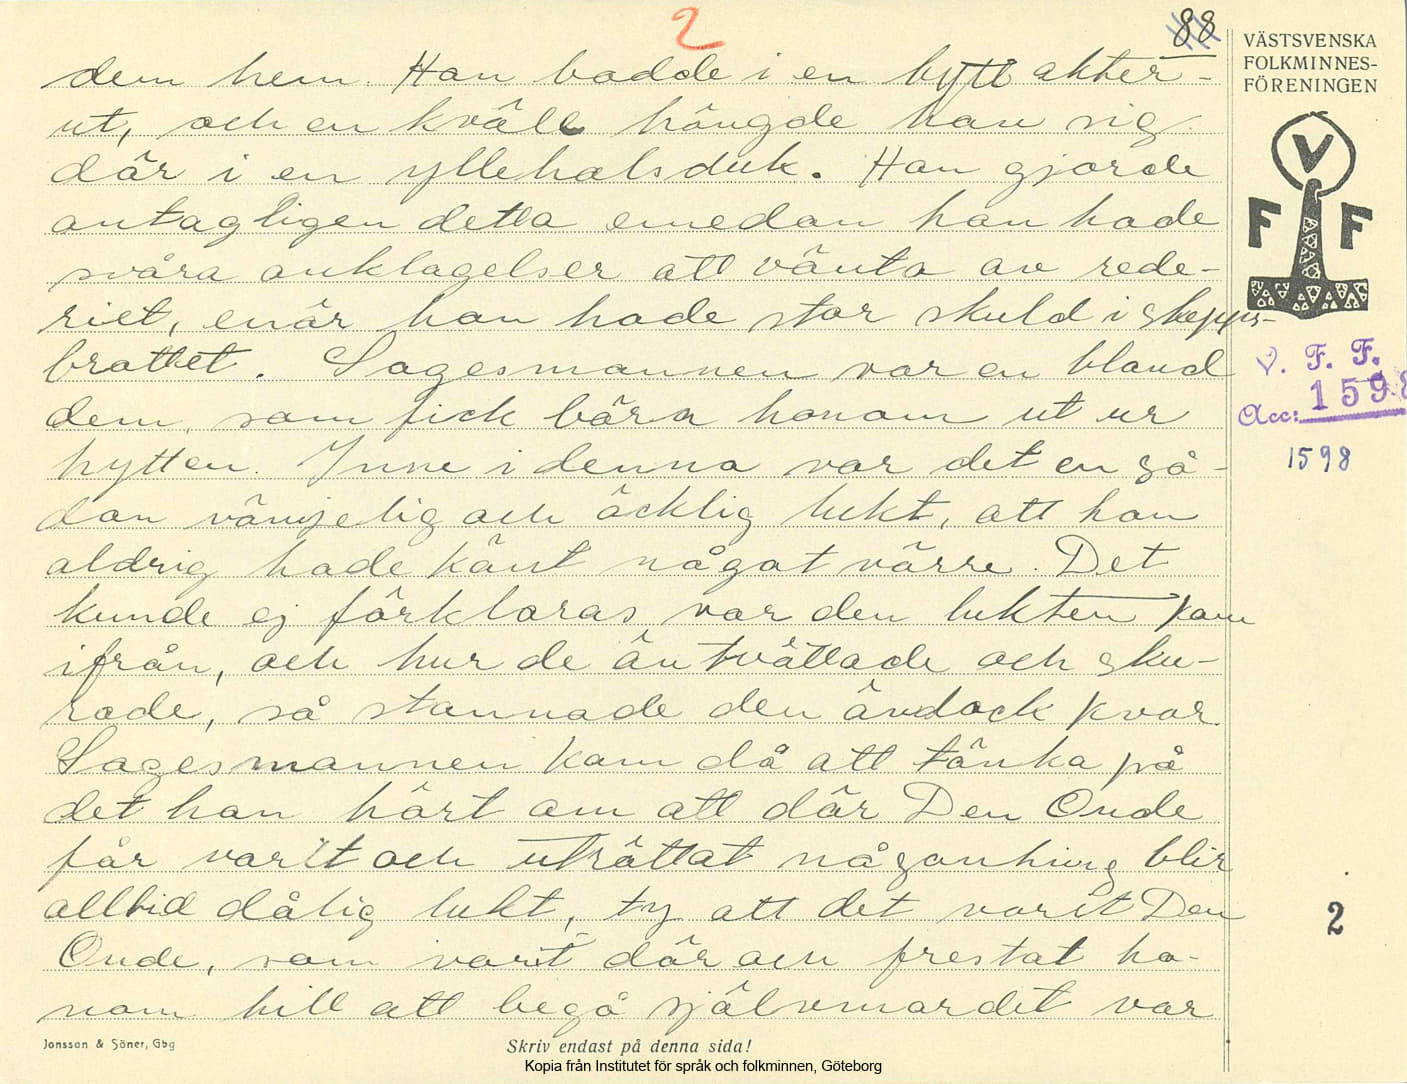 2
88
dem hem. Han bodde i en hytt akter-
ut, och en kväll hängde han sig
där i en yllehalsduk. Han gjorde
antagligen detta emedan han hade
svåra anklagelser att vänta av rede-
riet, enär han hade stor skuld i skepps-
brottet. Sagesmannen var en bland
dem som fick bära honom ut ur
hytten. Inne i denna var det en så-
dan vämjelig och äcklig lukt, att han
aldrig hade känt något värre. Det
kunde ej förklaras var den lukten kom
ifrån, och hur de än tvättade och sku-
rade, så stannade den ändock kvar.
Sagesmannen kom då att tänka på
det han hört om att där Den Onde
får varit och uträttat någonting blir
alltid dålig lukt, ty att det varit Den
Onde, som varit där och frestat ho-
nom till att begå självmordet var
VÄSTSVENSKA
FOLKMINNES-
FÖRENINGEN
V
F F
V. F. F.
Acc: 1598
1598
2
Jonsson & Söner, Gbg
Skriv endast på denna sida!
Kopia från Institutet för språk och folkminnen, Göteborg